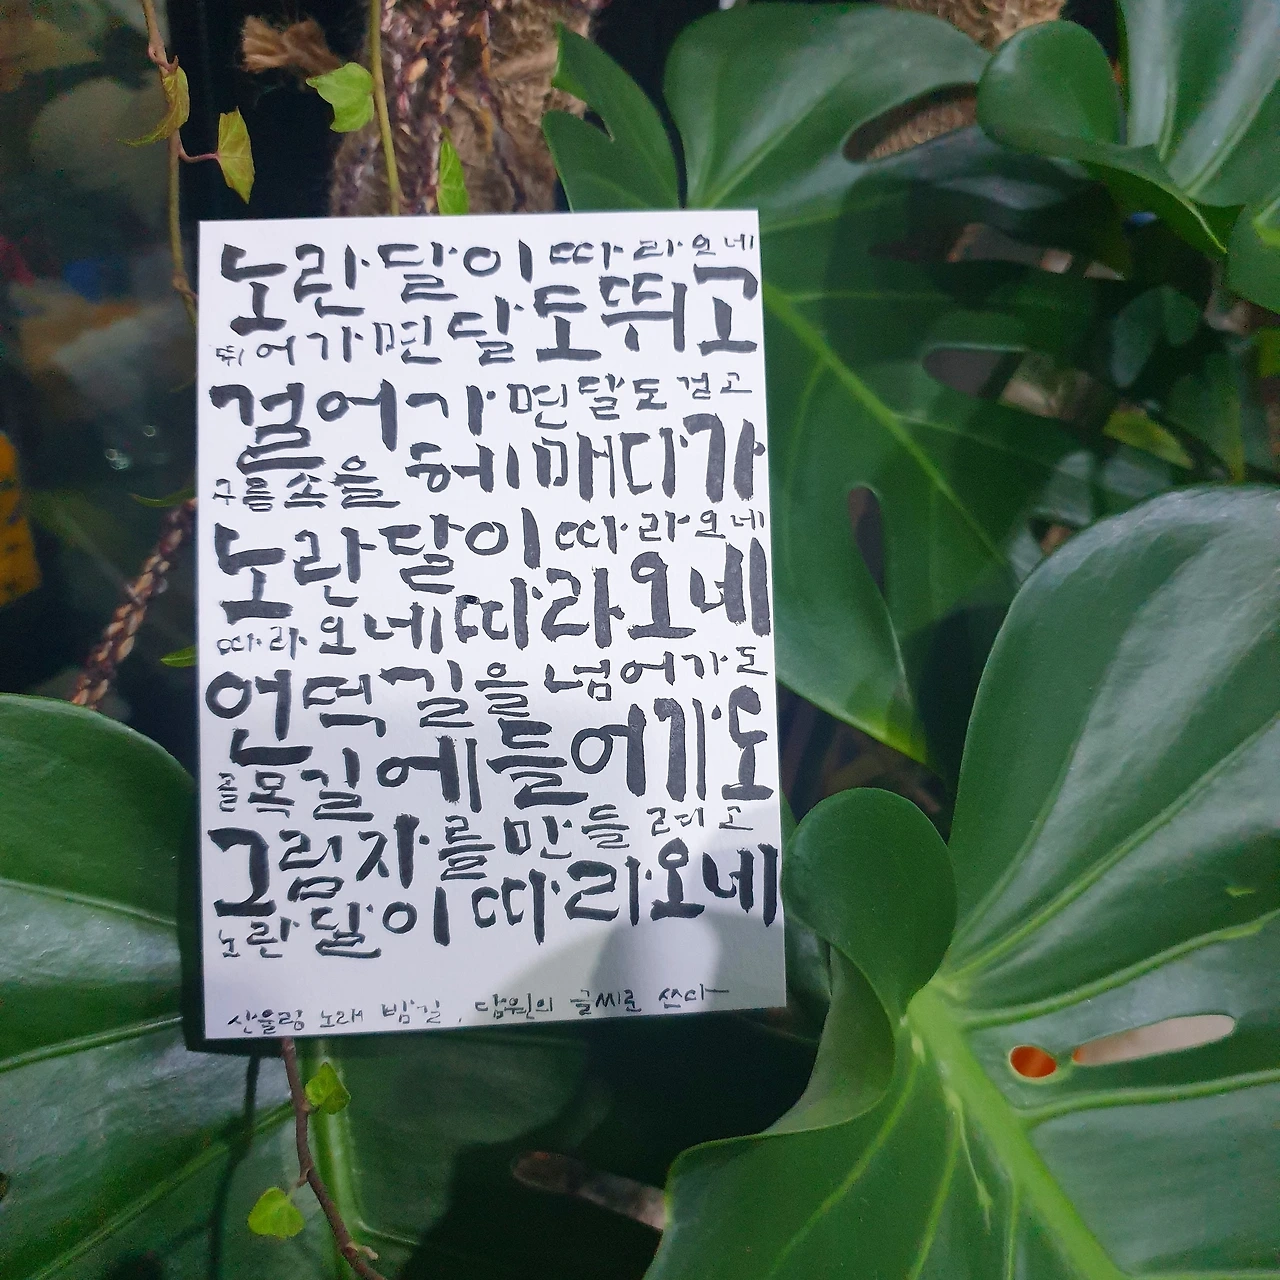 노란 달이 따라오네
뛰어가면 달도 뛰고
걸어가면 달도 걸고
구름 속을 헤매다가
노란 달이 따라오네
따라오네 따라오네
언덕길을 넘어가도
골목길에 들어가도
그림자를 만들려고
노란 달이 따라오네
산울림 노래 밤길, 담원의 글씨로 쓰다